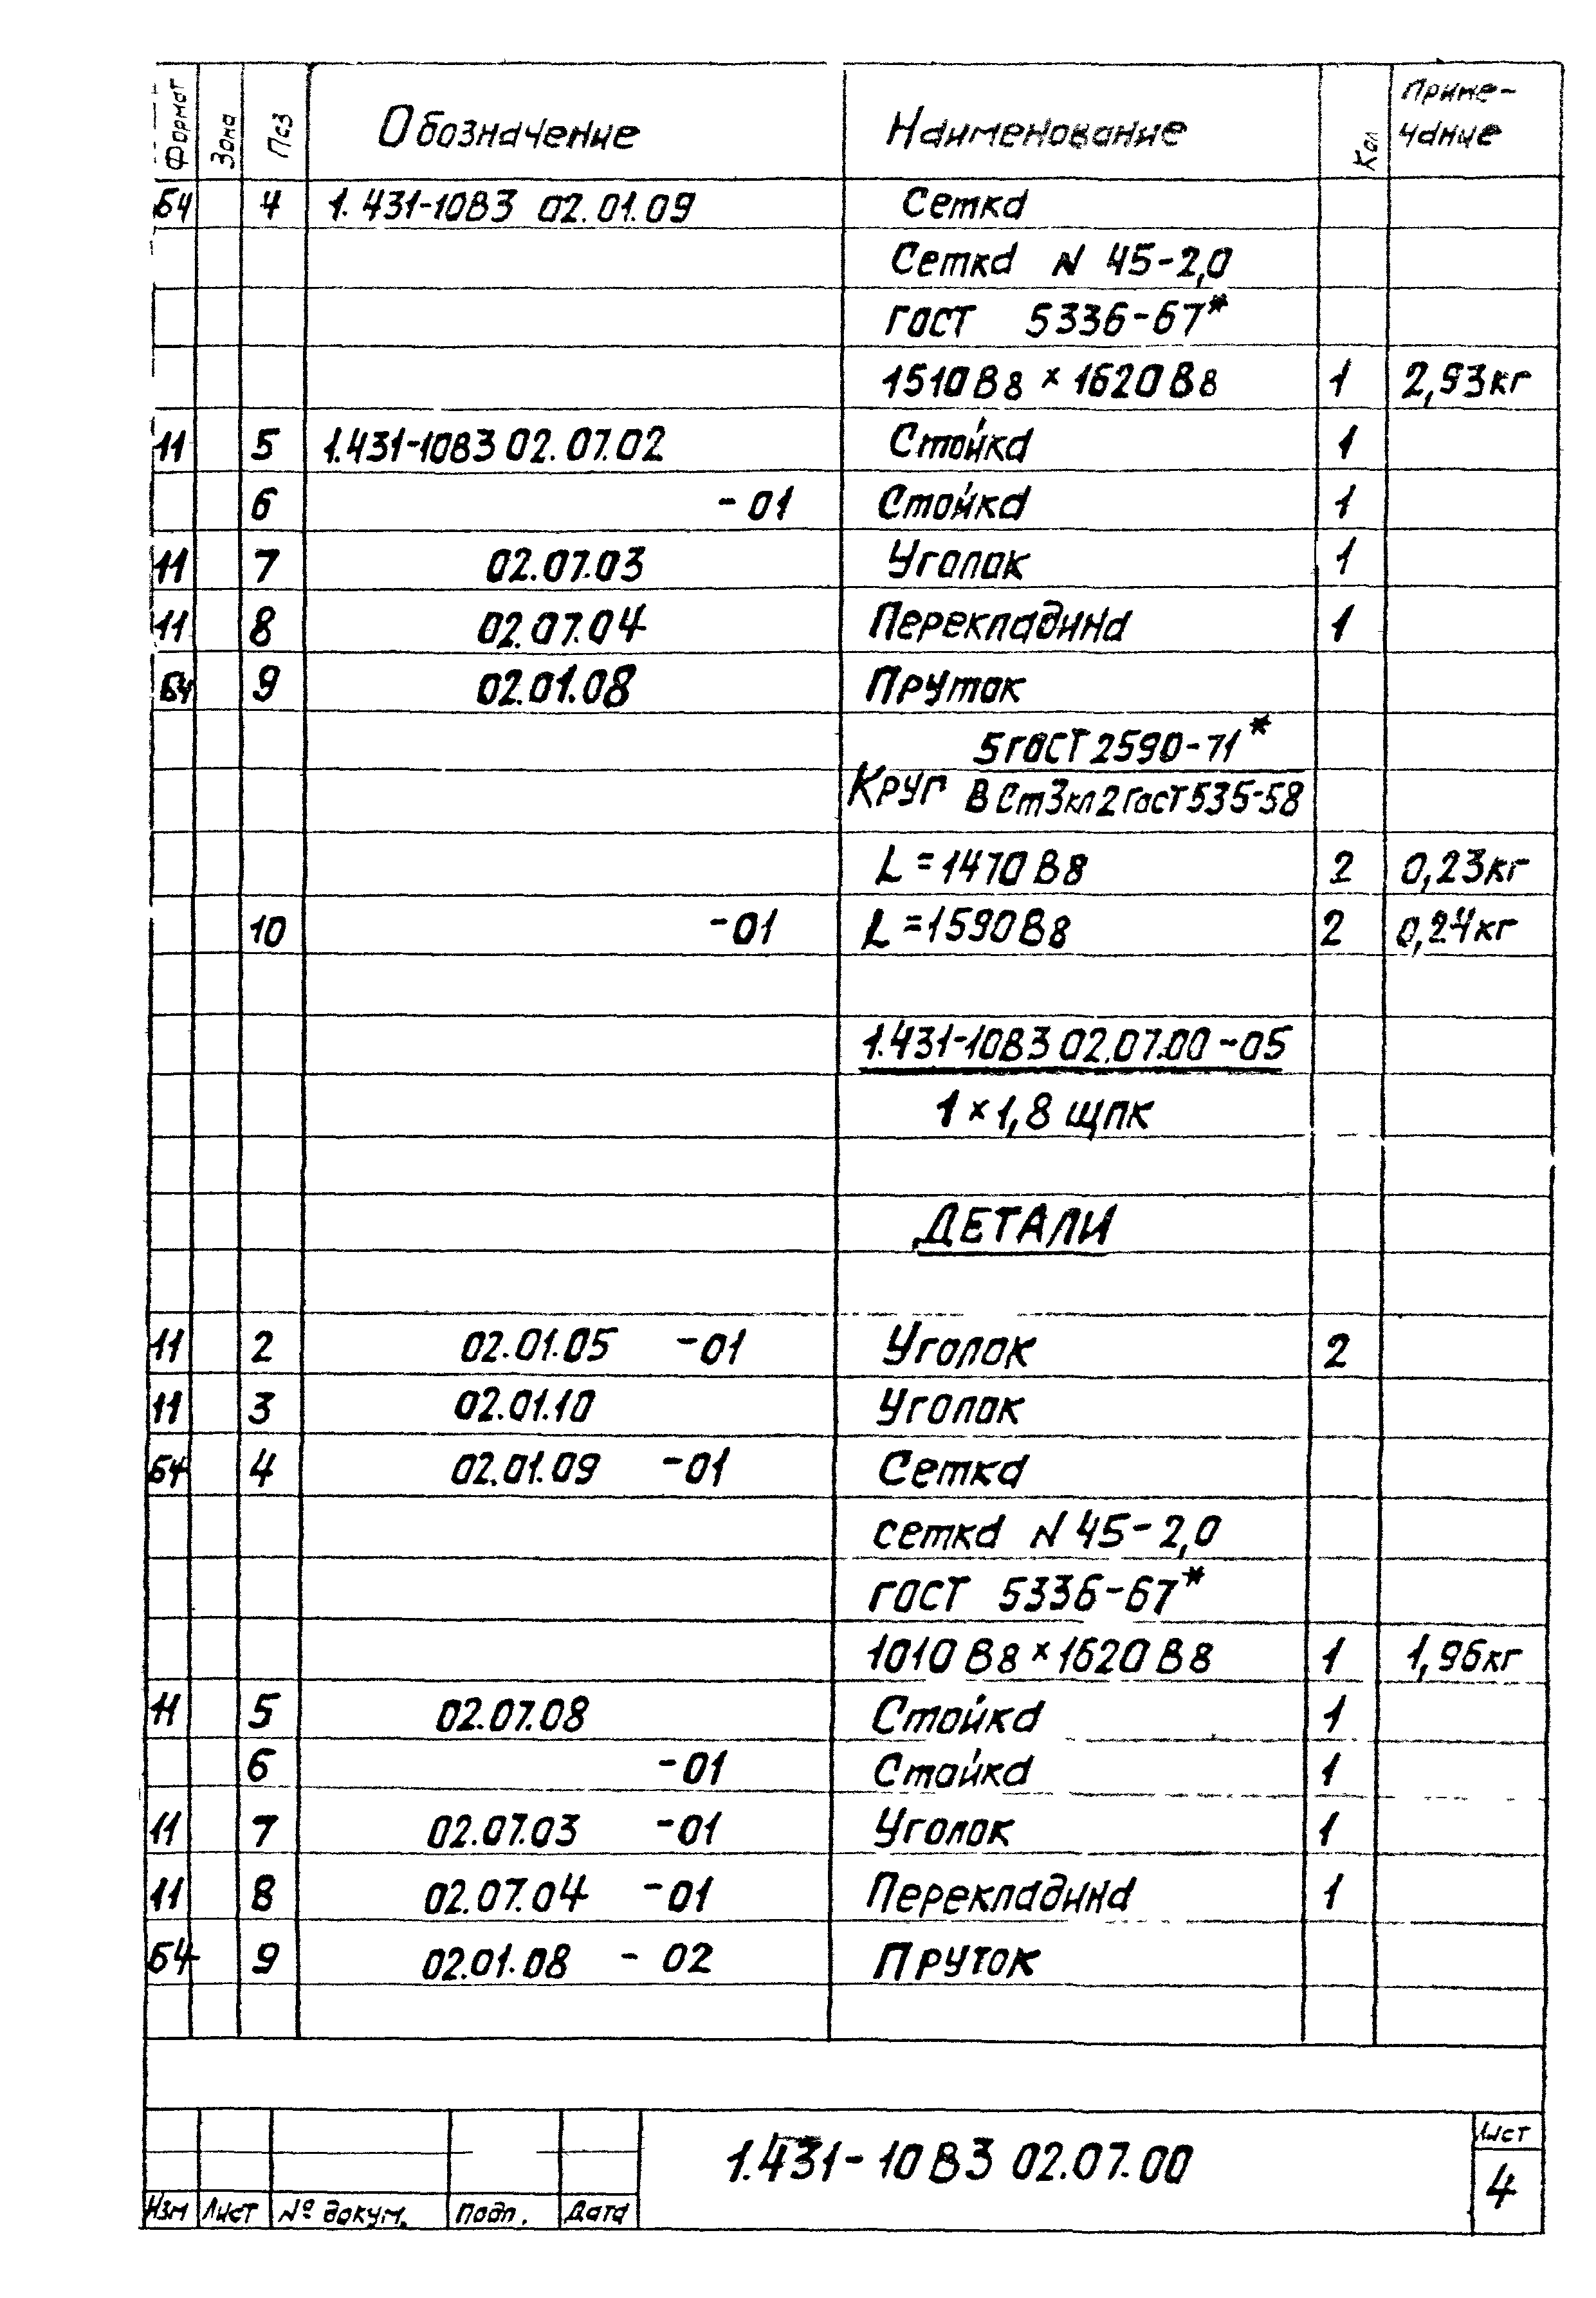 Формат Зона Поз Обозначение Наименование Кол Приме-
чание
БЧ 4 1.431-10В3 02.01.09 Сетка
Сетка N 45-2,0
ГОСТ 5336-67*
1510 В8 × 1620 В8 1 2,93кг
11 5 1.431-10В3 02.07.02 Стойка 1
6 -01 Стойка 1
11 7 02.07.03 Уголок 1
11 8 02.07.04 Перекладина 1
БЧ 9 02.01.08 Пруток
5 ГОСТ 2590-71*
Круг В Ст3кп2 ГОСТ 535-58
L = 1470 В8 2 0,23кг
10 -01 L = 1590 В8 2 0,24кг
1.431-10В3 02.07.00 -05
1 × 1,8 щпк
ДЕТАЛИ
11 2 02.01.05 -01 Уголок 2
11 3 02.01.10 Уголок
БЧ 4 02.01.09 -01 Сетка
сетка N 45-2,0
ГОСТ 5336-67*
1010 В8 × 1620 В8 1 1,96кг
11 5 02.07.08 Стойка 1
6 -01 Стойка 1
11 7 02.07.03 -01 Уголок 1
11 8 02.07.04 -01 Перекладина 1
БЧ 9 02.01.08 - 02 Пруток
1.431-10В3 02.07.00
Лист
4
Изм Лист № докум. Подп. Дата